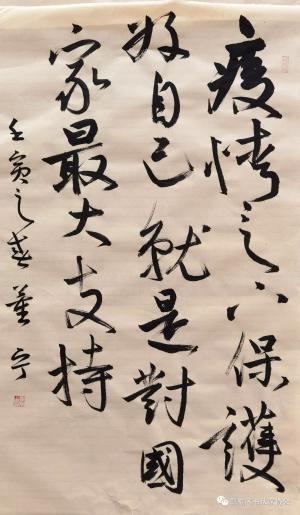 疫情之下保護
好自己就是對國
家最大支持
壬寅之春華宁